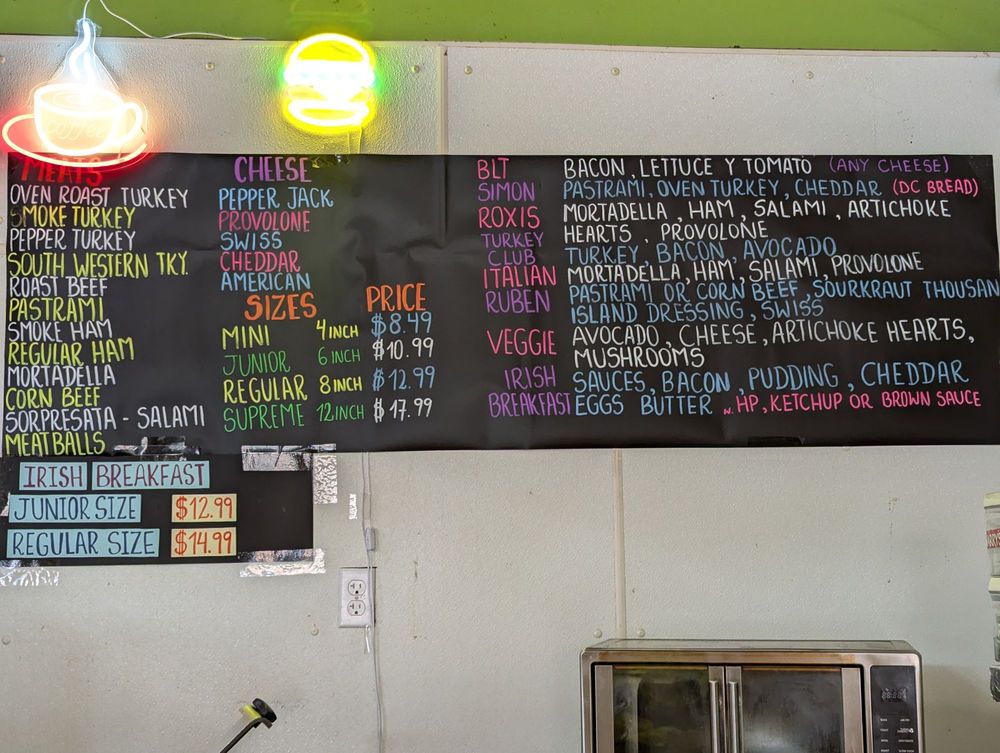 coffee
MEATS
OVEN ROAST TURKEY
SMOKE TURKEY
PEPPER TURKEY
SOUTH WESTERN TKY.
ROAST BEEF
PASTRAMI
SMOKE HAM
REGULAR HAM
MORTADELLA
CORN BEEF
SORPRESATA - SALAMI
MEATBALLS
CHEESE
PEPPER JACK
PROVOLONE
SWISS
CHEDDAR
AMERICAN
SIZES PRICE
MINI 4 INCH $8.49
JUNIOR 6 INCH $10.99
REGULAR 8 INCH $12.99
SUPREME 12 INCH $17.99
BLT BACON, LETTUCE Y TOMATO (ANY CHEESE)
SIMON PASTRAMI, OVEN TURKEY, CHEDDAR (DC BREAD)
ROXIS MORTADELLA, HAM, SALAMI, ARTICHOKE
HEARTS, PROVOLONE
TURKEY
CLUB TURKEY, BACON, AVOCADO
ITALIAN MORTADELLA, HAM, SALAMI, PROVOLONE
RUBEN PASTRAMI OR CORN BEEF, SOURKRAUT THOUSAN
ISLAND DRESSING, SWISS
VEGGIE AVOCADO, CHEESE, ARTICHOKE HEARTS,
MUSHROOMS
IRISH SAUCES, BACON, PUDDING, CHEDDAR
BREAKFAST EGGS BUTTER w. HP, KETCHUP OR BROWN SAUCE
IRISH BREAKFAST
JUNIOR SIZE $12.99
REGULAR SIZE $14.99